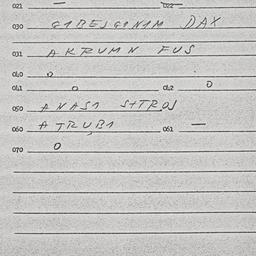 021 — 022
030 GABESGONAM DAX
031 AKRUMN FUS
040 0
041 0 042 0
050 ANASA SATROS
060 ATRUBA 061 —
070 0